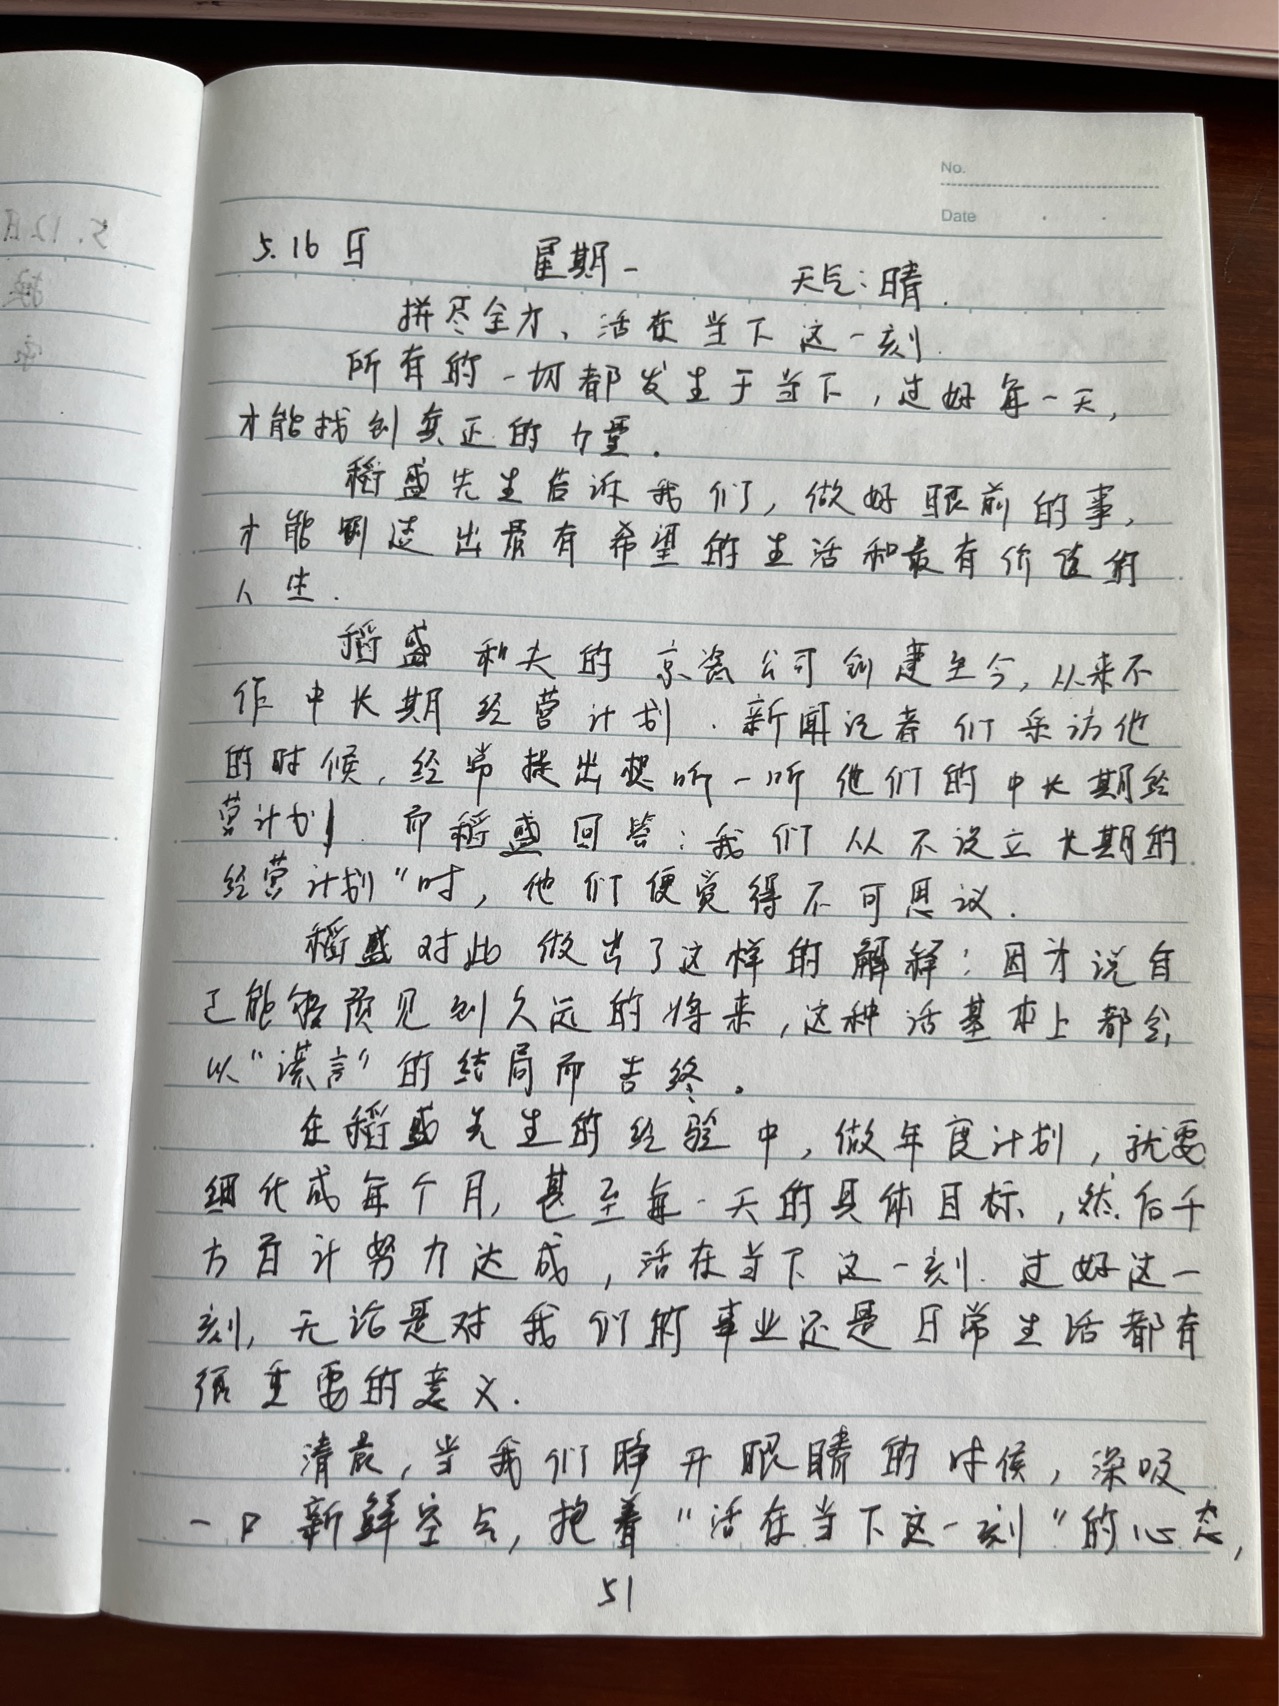 No.
Date
5.16日 星期一 天气:晴.
拼尽全力、活在当下这一刻.
所有的一切都发生于当下,过好每一天,
才能找到真正的力量.
稻盛先生告诉我们,做好眼前的事,
才能创造出最有希望的生活和最有价值的
人生.
稻盛和夫的京瓷公司创建至今,从来不
作中长期经营计划.新闻记者们采访他
的时候,经常提出想听一听他们的中长期经
营计划.而稻盛回答:我们从不设立长期的
经营计划"时,他们便觉得不可思议.
稻盛对此做出了这样的解释:因为说自
己能够预见到久远的将来,这种话基本上都会
以"谎言"的结局而告终。
在稻盛先生的经验中,做年度计划,就要
细化成每个月,甚至每一天的具体目标,然后千
方百计努力达成,活在当下这一刻.过好这一
刻,无论是对我们的事业还是日常生活都有
很重要的意义.
清晨,当我们睁开眼睛的时候,深吸
一口新鲜空气,抱着"活在当下这一刻"的心态,
51
5.12日